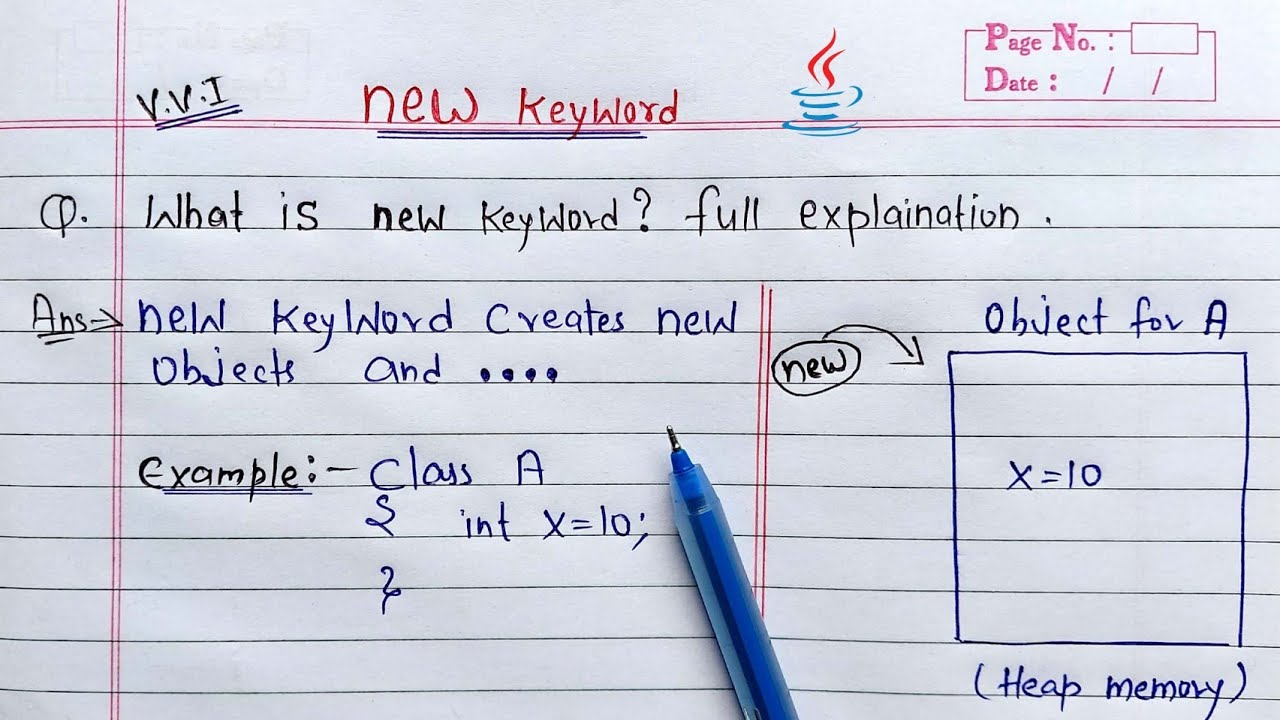 Page No. :
Date : / /
V.V.I new Keyword
Q. What is new Keyword? full explaination.
Ans→ new Keyword Creates new
Objects and ....
Example:- Class A
{ int X=10;
}
new
Object for A
X=10
(Heap memory)